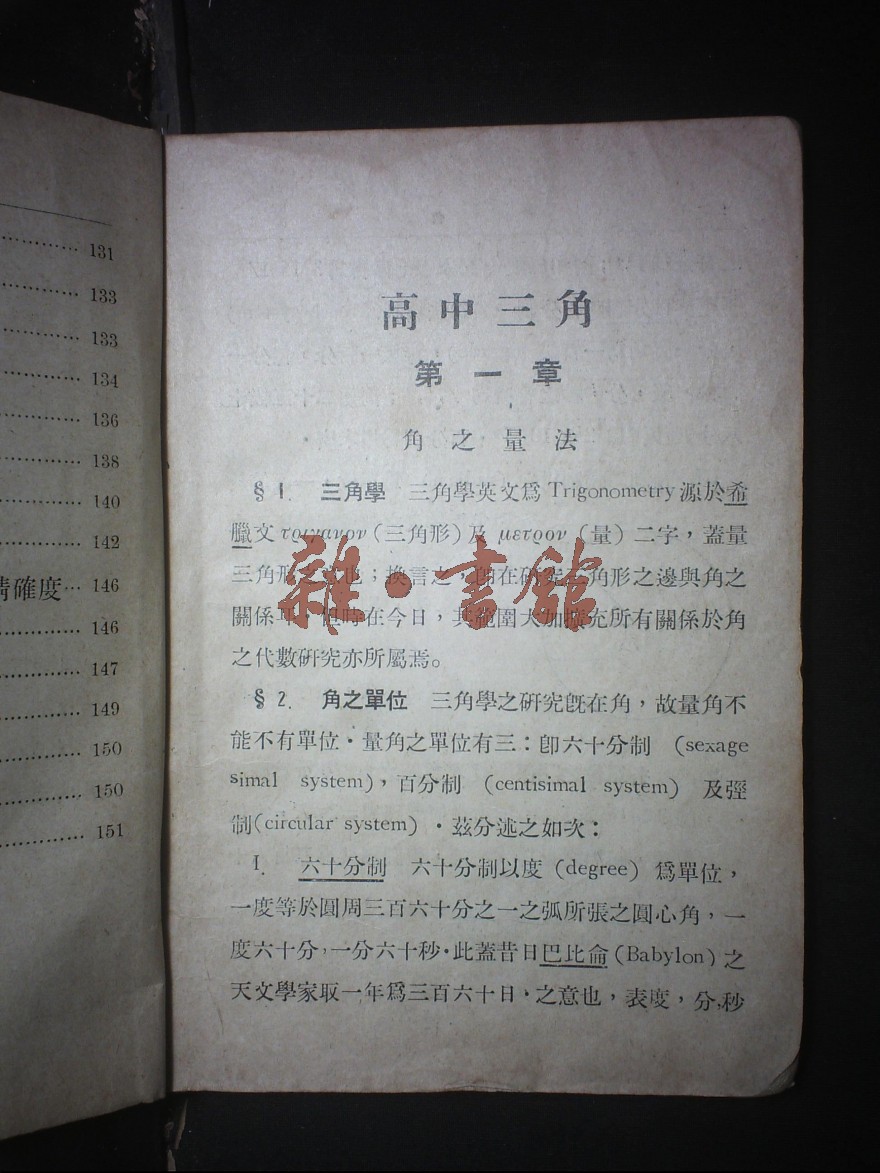 131
133
133
134
136
138
140
142
精確度… 146
146
147
149
150
150
151
高中三角
第一章
角之量法
§ 1. 三角學 三角學英文爲 Trigonometry 源於希
臘文 τριγανον (三角形) 及 μετρον (量) 二字，蓋量
三角形之也；換言之，卽在研究三角形之邊與角之
關係耳，但時在今日，其範圍大加擴充所有關係於角
之代數研究亦所屬焉。
§ 2. 角之單位 三角學之研究旣在角，故量角不
能不有單位・量角之單位有三：卽六十分制 (sexage
simal system)，百分制 (centisimal system) 及弳
制(circular system)・茲分述之如次：
I. 六十分制 六十分制以度 (degree) 爲單位，
一度等於圓周三百六十分之一之弧所張之圓心角，一
度六十分，一分六十秒・此蓋昔日巴比侖 (Babylon) 之
天文學家取一年爲三百六十日・之意也，表度，分，秒
雜・書館